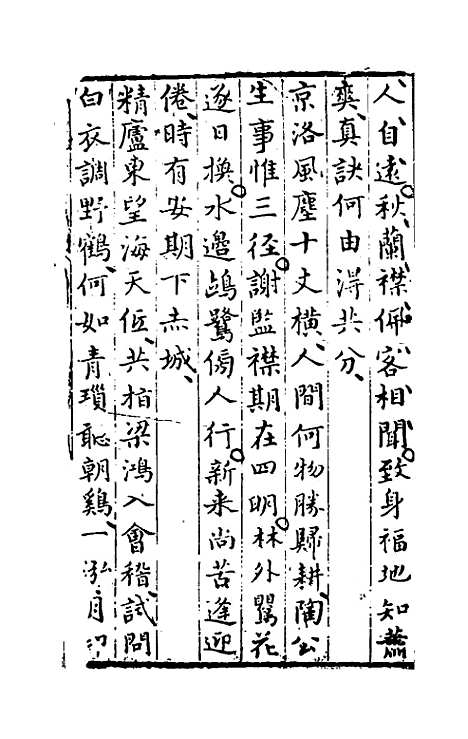 人自遠秋蘭襟佩客相聞致身福地知蕭
爽真訣何由得共分
京洛風塵十丈橫人間何物勝歸耕陶公
生事惟三徑謝監襟期在四明林外鶯花
逐日換水邊鷗鷺傍人行新來尚苦逢迎
倦時有安期下赤城
精廬東望海天低共指梁鴻入會稽試問
白衣調野鶴何如青瑣恥朝鷄一泓月